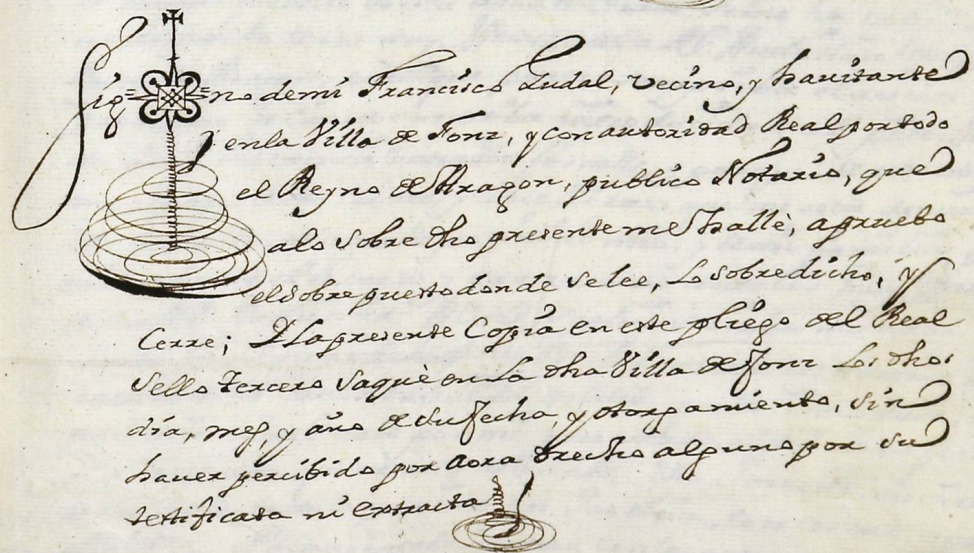 Sig=no de mi Francisco Zudal, vecino, y havitante
en la Villa de Fonz, y con autoridad Real por todo
el Reyno de Aragon, publico Notario, que
a lo sobre dho presente me hallè, apruebo
el sobre puesto donde se lee, Lo sobre dicho, y
Cerrè; Y La presente Copia en este pliego del Real
Sello tercero saquè en La dha Villa de Fonz Los dhos
dia, mes, y año de su fecha, y otorgamiento, sin
haver percibido por aora drecho alguno por su
testificata ni extracta